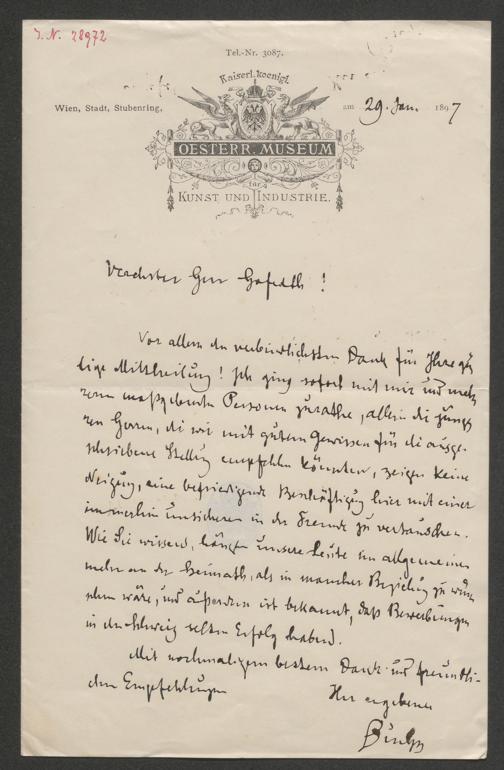 I. N. 28972
Tel.-Nr. 3087.
Kaiserl. koenigl.
Wien, Stadt, Stubenring, am 29. Jan. 1897
OESTERR. MUSEUM
für
KUNST UND INDUSTRIE.
Verehrter Herr Hofrath!
Vor allem den verbindlichsten Dank für Ihre gü
tige Mittheilung! Ich ging sofort mit mir und meh
reren maßgebenden Personen zurathe, allein die jünge
ren Herren, die wir mit gutem Gewissen für die ausge
schriebene Stellung empfehlen könnten, zeigen keine
Neigung, eine befriedigende Beschäftigung hier mit einer
immerhin unsicheren in der Fremde zu vertauschen.
Wie Sie wissen, hängen unsere Leute im allgemeinen
mehr an der Heimath, als in mancher Beziehung zu wün
schen wäre, und außerdem ist bekannt, daß Bewerbungen
in der Schweiz selten Erfolg haben.
Mit nochmaligem bestem Dank und freundli-
chen Empfehlungen
Ihr ergebener